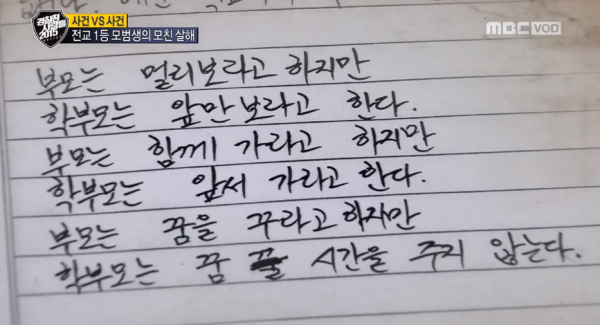 경찰청 사람들 2015
사건 VS 사건
전교 1등 모범생의 모친 살해
MBC VOD
부모는 멀리보라고 하지만
학부모는 앞만 보라고 한다.
부모는 함께 가라고 하지만
학부모는 앞서 가라고 한다.
부모는 꿈을 꾸라고 하지만
학부모는 꿈 꿀 시간을 주지 않는다.